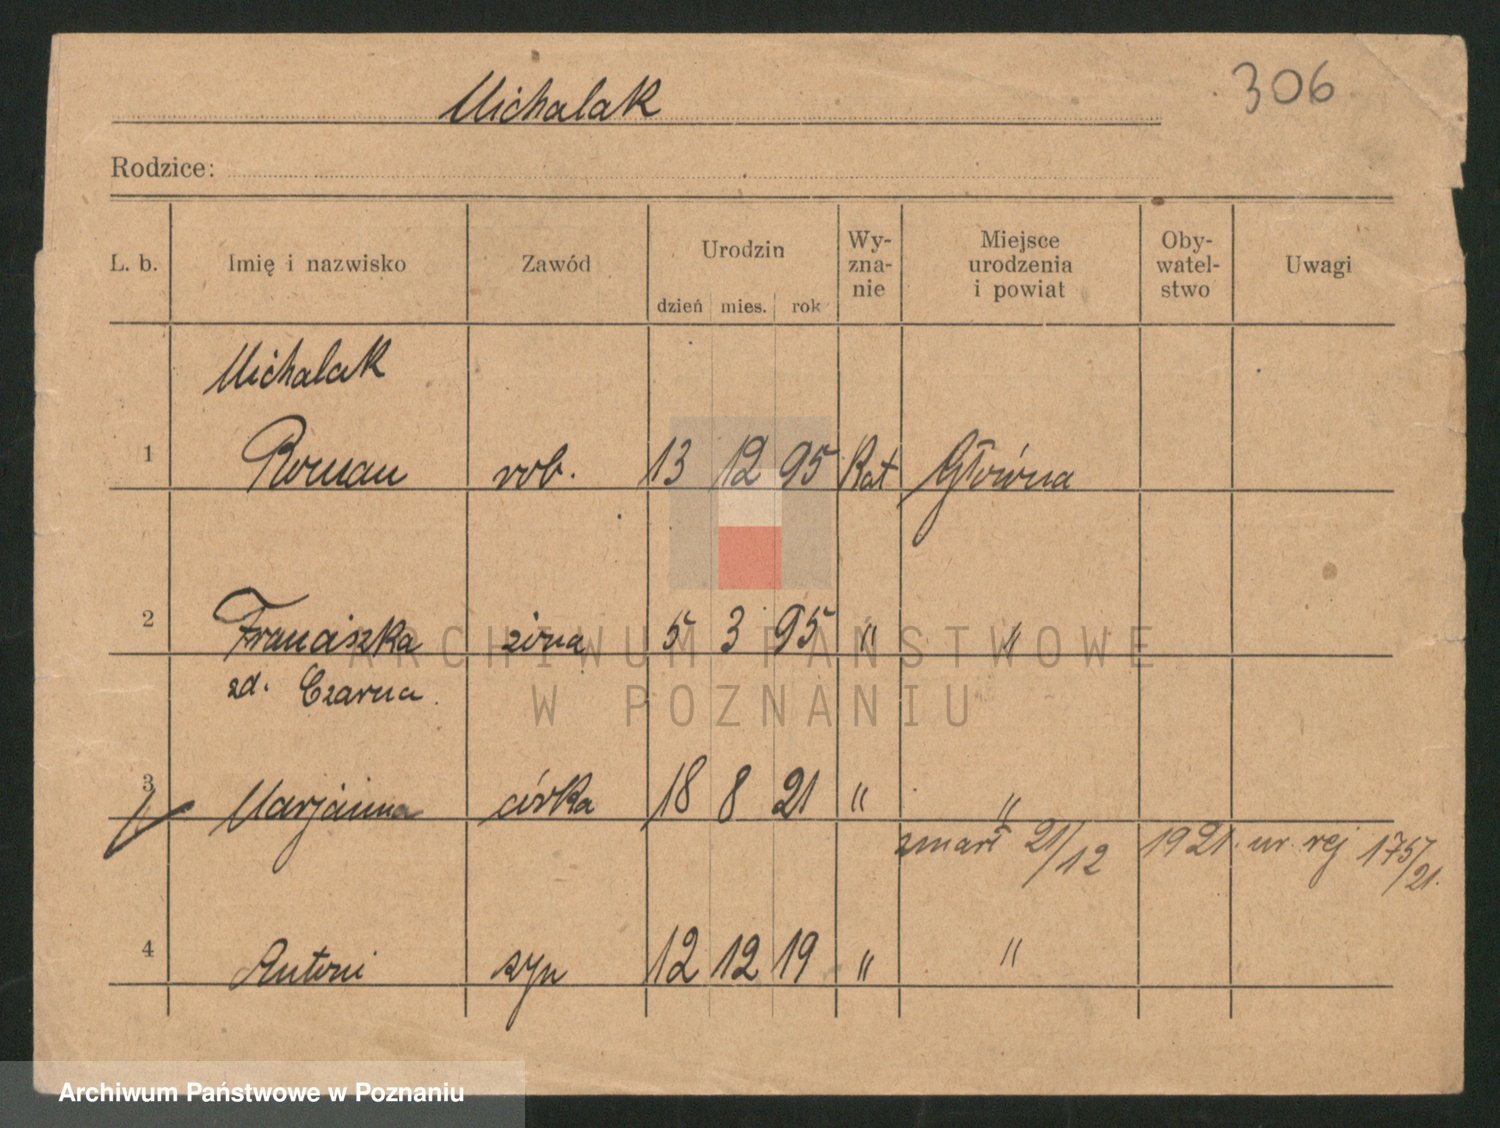 306
Michalak
Rodzice:
L. b. Imię i nazwisko Zawód Urodzin dzień mies. rok Wy-zna-nie Miejsce urodzenia i powiat Oby-watel-stwo Uwagi
Michalak
1 Roman rob. 13 12 95 Kat Główna
2 Franciszka żona 5 3 95 " "
zd. Czarna.
3 Marjanna córka 18 8 21 " "
zmarł 21/12 1921. nr. rej 175/21.
4 Antoni syn 12 12 19 " "
ARCHIWUM PAŃSTWOWE
W POZNANIU
Archiwum Państwowe w Poznaniu